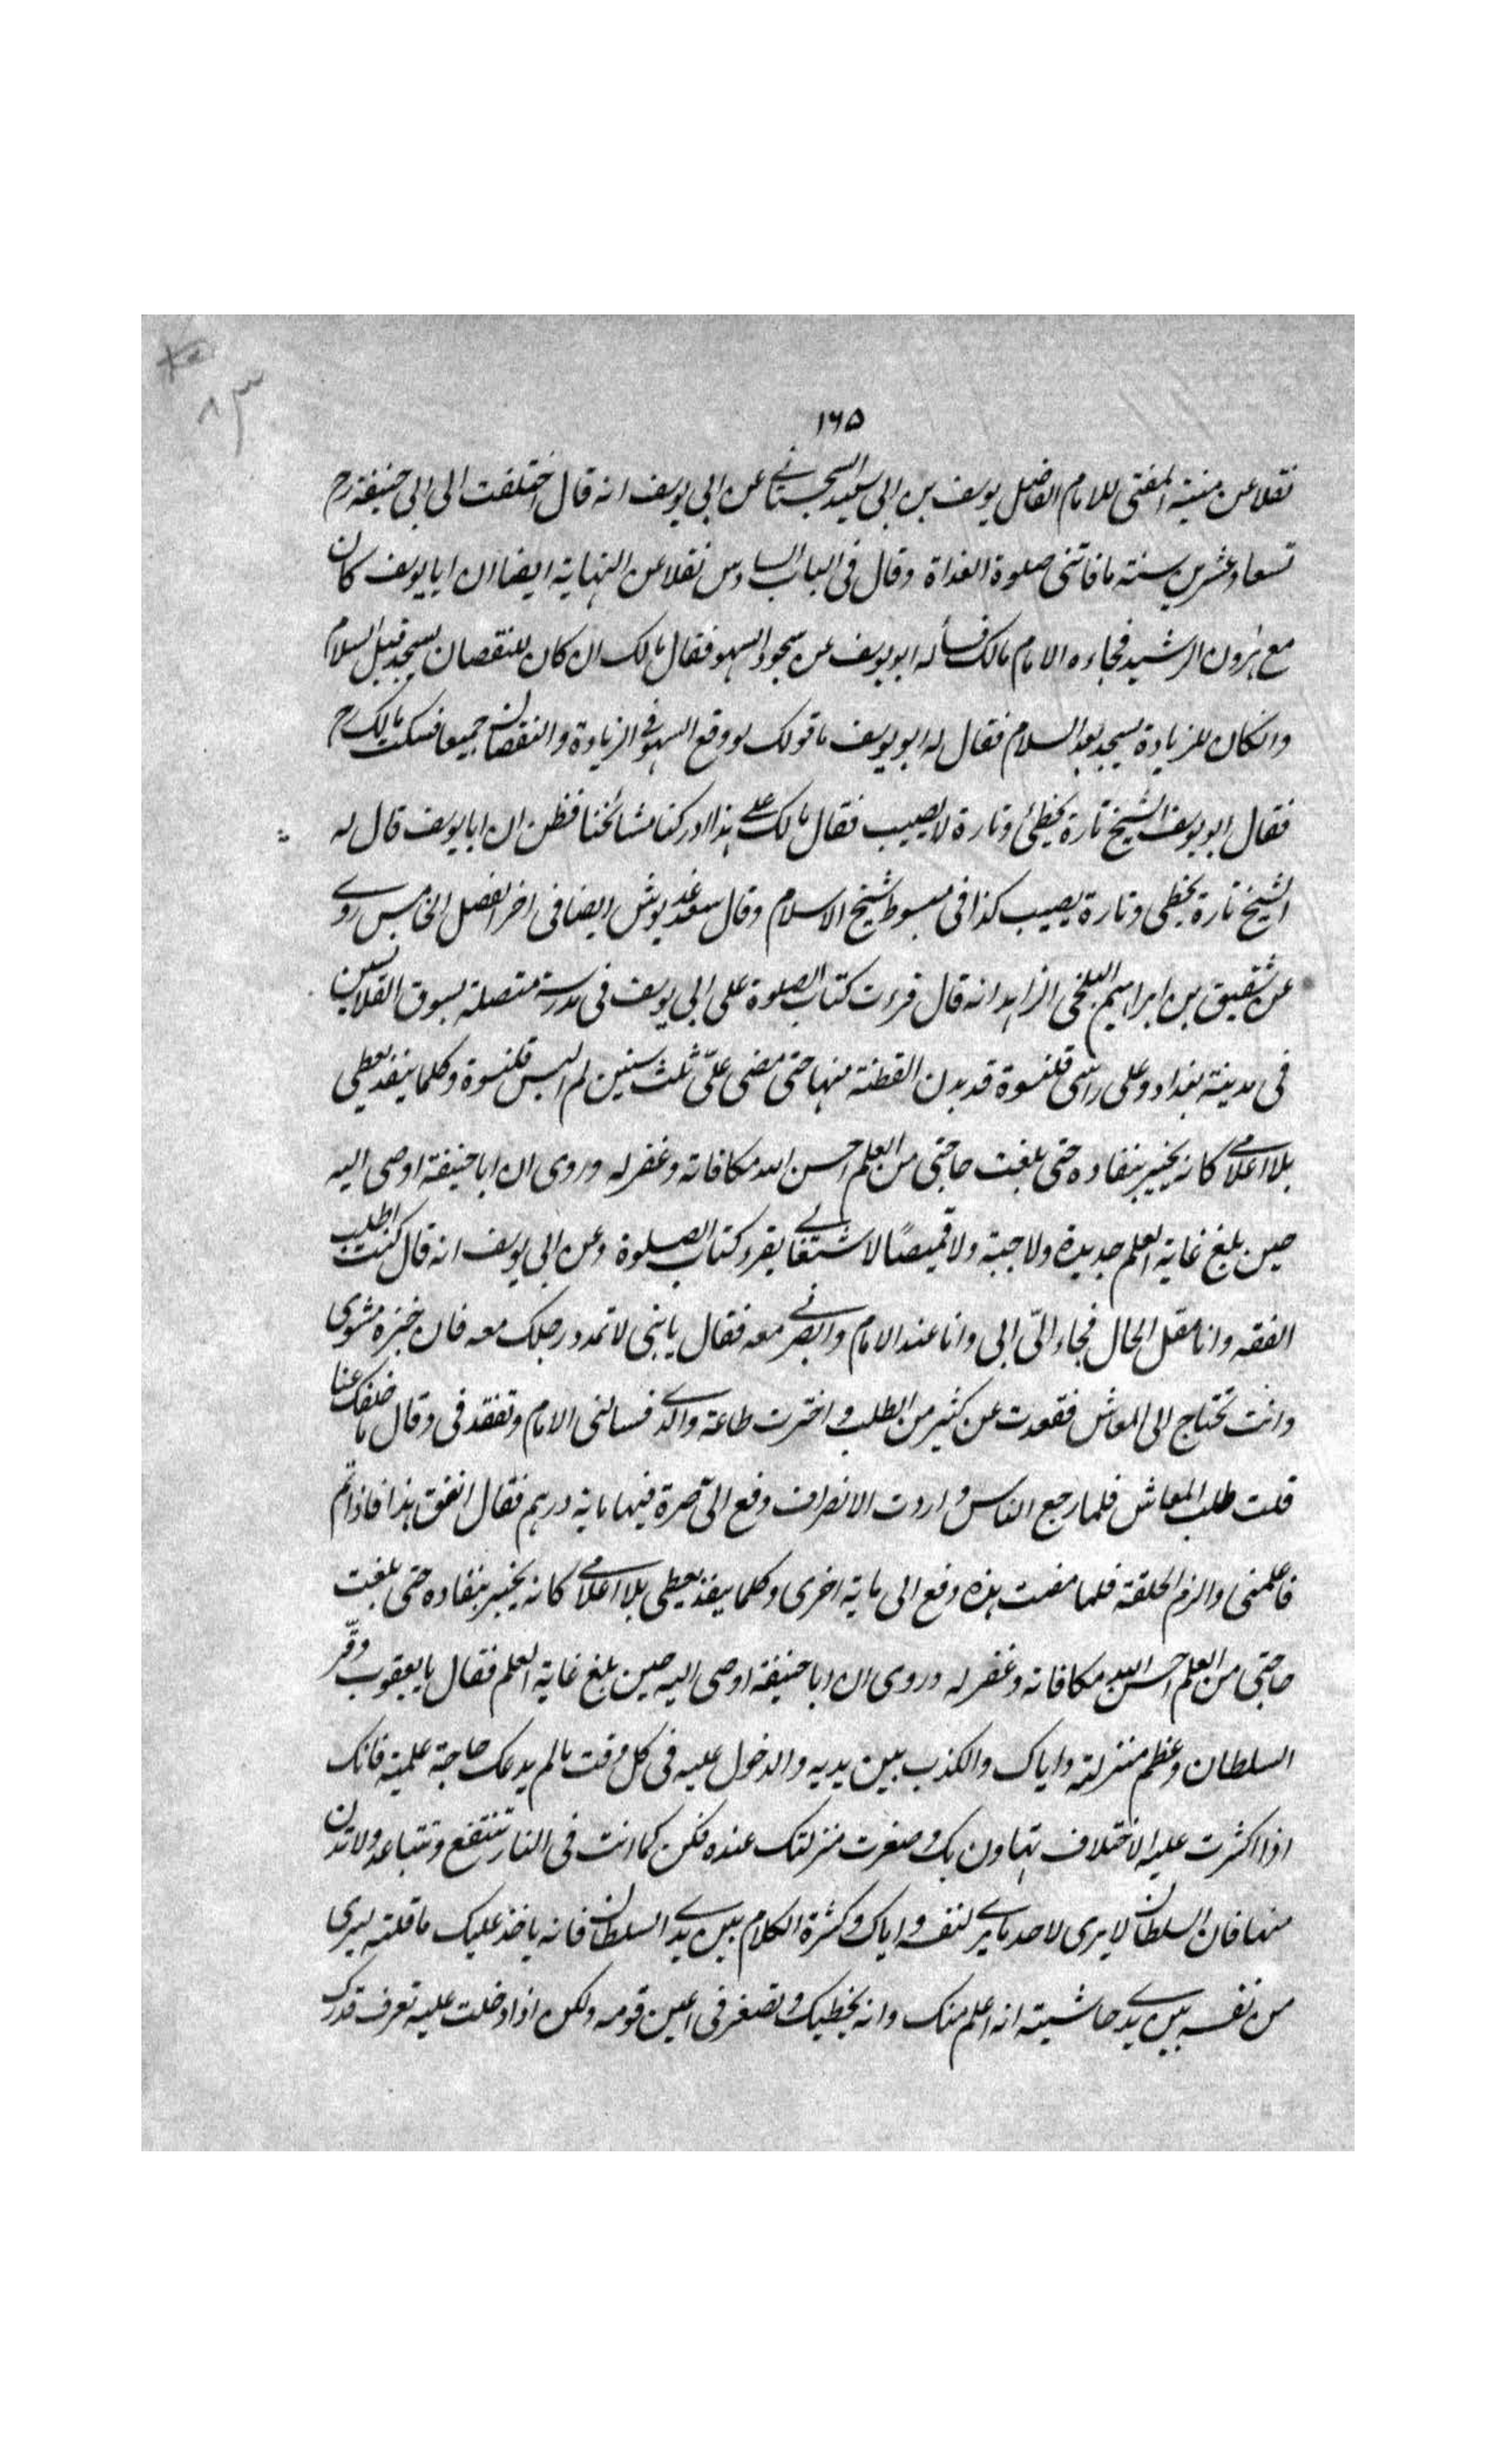 ١٦٥
٨٣
نقلا عن منية المفتى للامام الفاضل يوسف بن ابى سعيد السجستانى عن ابى يوسف انه قال اختلفت الى ابى حنيفة رح
تسعا وعشرين سنة ما فاتتنى صلوة الغداة وقال فى الباب السادس نقلا عن النهاية ايضا ان ابا يوسف كان
مع هرون الرشيد فجاءه الامام مالك فسأله ابو يوسف عن سجود السهو فقال مالك ان كان للنقصان يسجد قبل السلام
وانكان للزيادة يسجد بعد السلام فقال له ابو يوسف ما قولك لو وقع السهو فى الزيادة والنقصان جميعا فسكت مالك رح
فقال ابو يوسف الشيخ تارة يخطئ وتارة لا يصيب فقال مالك على هذا ادركنا مشائخنا فظن ان ابا يوسف قال له
الشيخ تارة يخطى وتارة يصيب كذا فى مبسوط شيخ الاسلام وقال ايضا فى اخر الفصل الخامس روى
عن شقيق بن ابراهيم البلخى الزاهد انه قال قرءت كتاب الصلوة على ابى يوسف فى مدرسة متصلة بسوق القلانسين
فى مدينة بغداد وعلى راسى قلنسوة قد بدن القطنة منها حتى مضى علىّ ثلث سنين لم البس قلنسوة وكلما ينفد يعطى
بلا اعلامى كانه يخبر بنفاده حتى بلغت حاجتى من العلم احسن الله مكافاته وغفر له وروى ان ابا حنيفة اوصى اليه
حين بلغ غاية العلم جديدة ولا جبة ولا قميصًا لاشتغالى بقرء كتاب الصلوة وعن ابى يوسف انه قال كنت اطلب
الفقه وانا مقل الحال فجاء الىّ ابى وانا عند الامام وابصرنى معه فقال يا بنى لا تمدد رجلك معه فان خبزه مشوى
وانت تحتاج الى المعاش فقعدت عن كثير من الطلب واخترت طاعة والدى فسالنى الامام وتفقدنى وقال ما خلفك عنا
قلت طلب المعاش فلما رجع الناس واردت الانصراف دفع الىّ صرة فيها ماية درهم فقال انفق هذا فاذا تم
فاعلمنى والزم الحلقة فلما مضت هذه دفع الى ماية اخرى وكلما ينفذ يعطى بلا اعلامى كانه يخبر بنفاده حتى بلغت
حاجتى من العلم احسن الله مكافاته وغفر له وروى ان ابا حنيفة اوصى اليه حين بلغ غاية العلم فقال يا يعقوب وقّر
السلطان وعظم منزلته واياك والكذب بين يديه والدخول عليه فى كل وقت مالم يدعك حاجة علمية فانك
اذا اكثرت عليه الاختلاف تهاون بك وصغرت منزلتك عنده فكن كما انت فى النار تنتفع وتتباعد ولا تدن
منها فان السلطان لا يرى لاحد ما يرى لنفسه واياك وكثرة الكلام بين يدى السلطان فانه ياخذ عليك ما قلته ليرى
من نفسه بين يدى حاشيته انه اعلم منك وانه يخطيك وتصغر فى اعين قومه ولكن اذا دخلت عليه تعرف قدرك